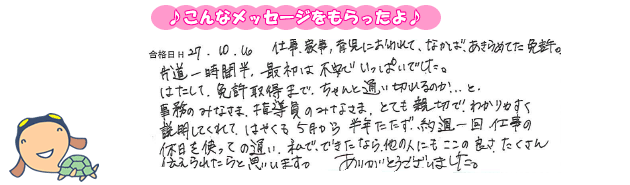 ♪こんなメッセージをもらったよ♪
合格日 H 27.10.16 仕事、家事、育児におわれて、なかば、あきらめてた免許。
片道一時間半、最初は不安でいっぱいでした。
はたして、免許取得まで、ちゃんと通い切れるのか…と。
事務のみなさま、指導員のみなさま、とても親切で、わかりやすく
説明してくれて、はやくも5月から半年たたず、約週一回仕事の
休日を使っての通い、私でできたなら、他の人にもここの良さ、たくさん
伝えられたらと思います。 ありがとうございました。